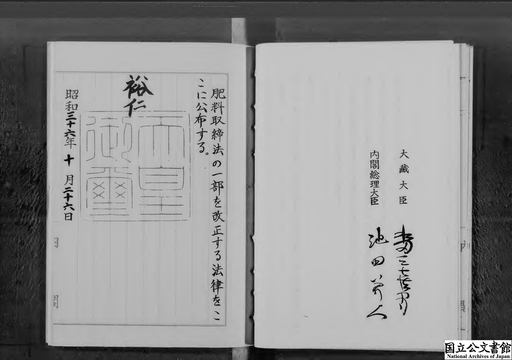 大藏大臣
内閣総理大臣 池田勇人
肥料取締法の一部を改正する法律をこ
こに公布する。
裕仁
天皇
御璽
昭和三十六年十月二十六日
国立公文書館
National Archives of Japan